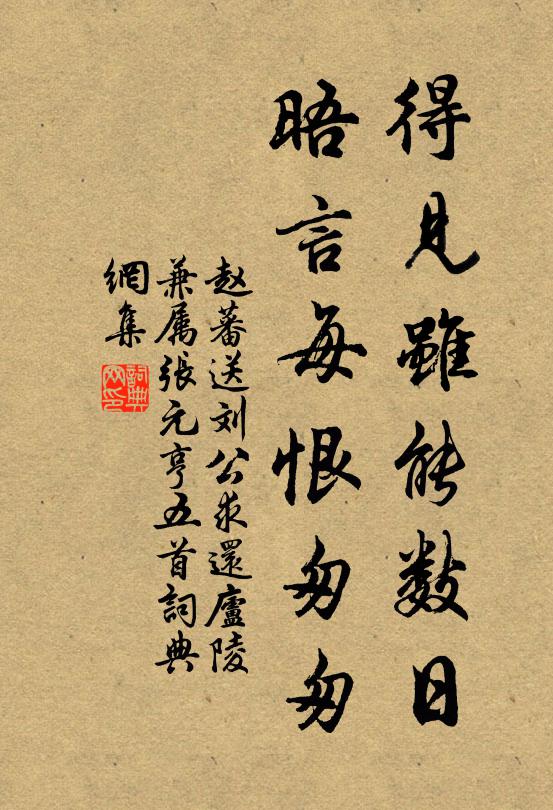 得見雖能數日
晤言每恨匆匆
赵蕃送刘公求還廬陵
兼属張元亨五首詞典
網集
詞典
网印